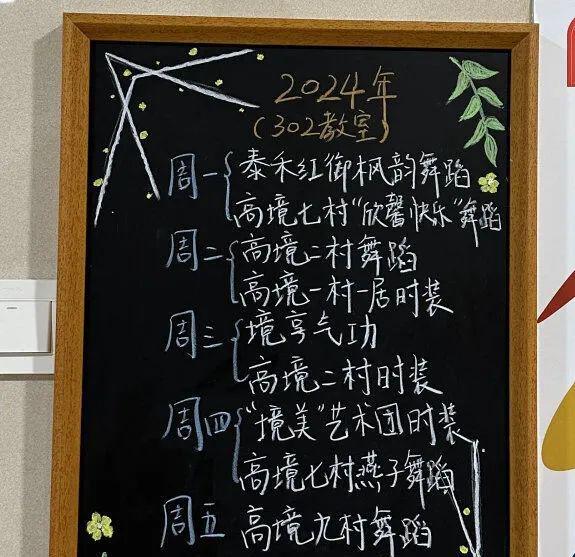 2024年
(302教室)
周一 泰禾红御枫韵舞蹈
高境七村"欣馨快乐"舞蹈
周二 高境二村舞蹈
高境一村一居时装
周三 境享气功
高境二村时装
周四 "境美"艺术团时装
高境七村燕子舞蹈
周五 高境九村舞蹈